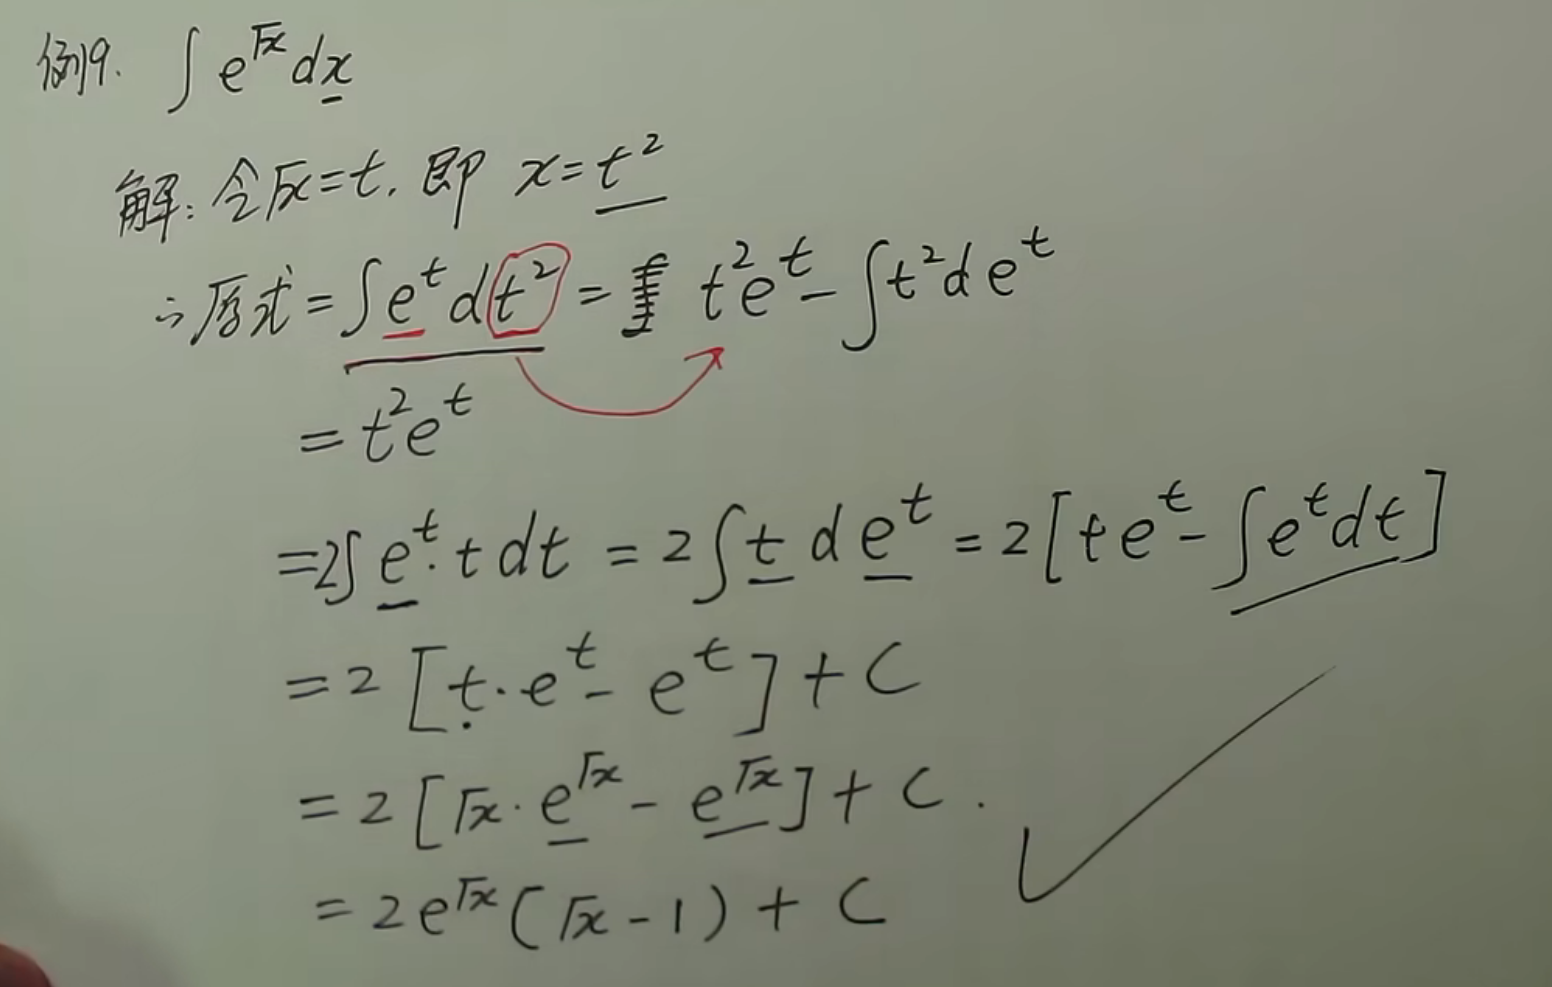 例9. ∫e^√x dx
解: 令√x=t. 即 x=t²
∴原式=∫e^t dt²= t²e^t-∫t²de^t
=t²e^t
=2∫e^t·tdt=2∫tde^t=2[te^t-∫e^tdt]
=2[t·e^t-e^t]+C
=2[√x·e^√x-e^√x]+C.
=2e^√x(√x-1)+C